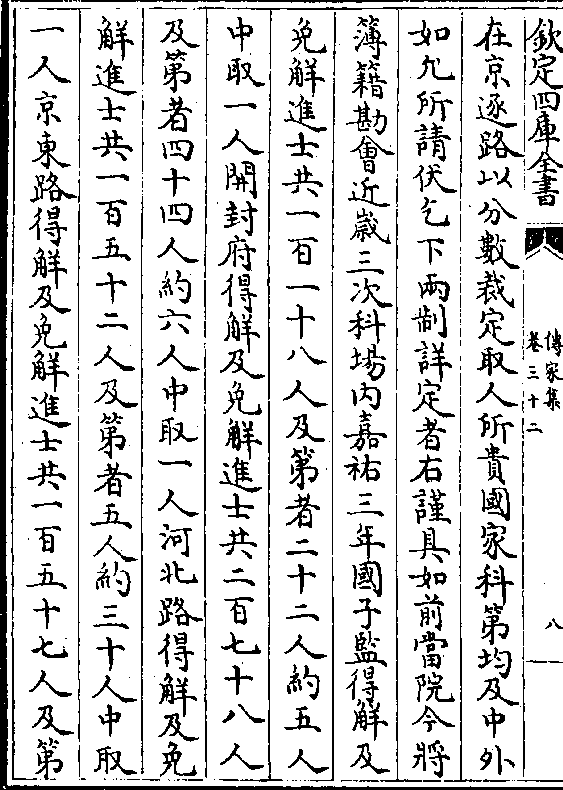 欽定四庫全書
傳家集
卷三十二
八
在京逐路以分數裁定取人所貴國家科第均及中外
如允所請伏乞下兩制詳定者右謹具如前當院今將
簿籍勘會近歲三次科場内嘉祐三年國子監得解及
免解進士共一百一十八人及第者二十二人約五人
中取一人開封府得解及免解進士共二百七十八人
及第者四十四人約六人中取一人河北路得解及免
解進士共一百五十二人及第者五人約三十人中取
一人京東路得解及免解進士共一百五十七人及第